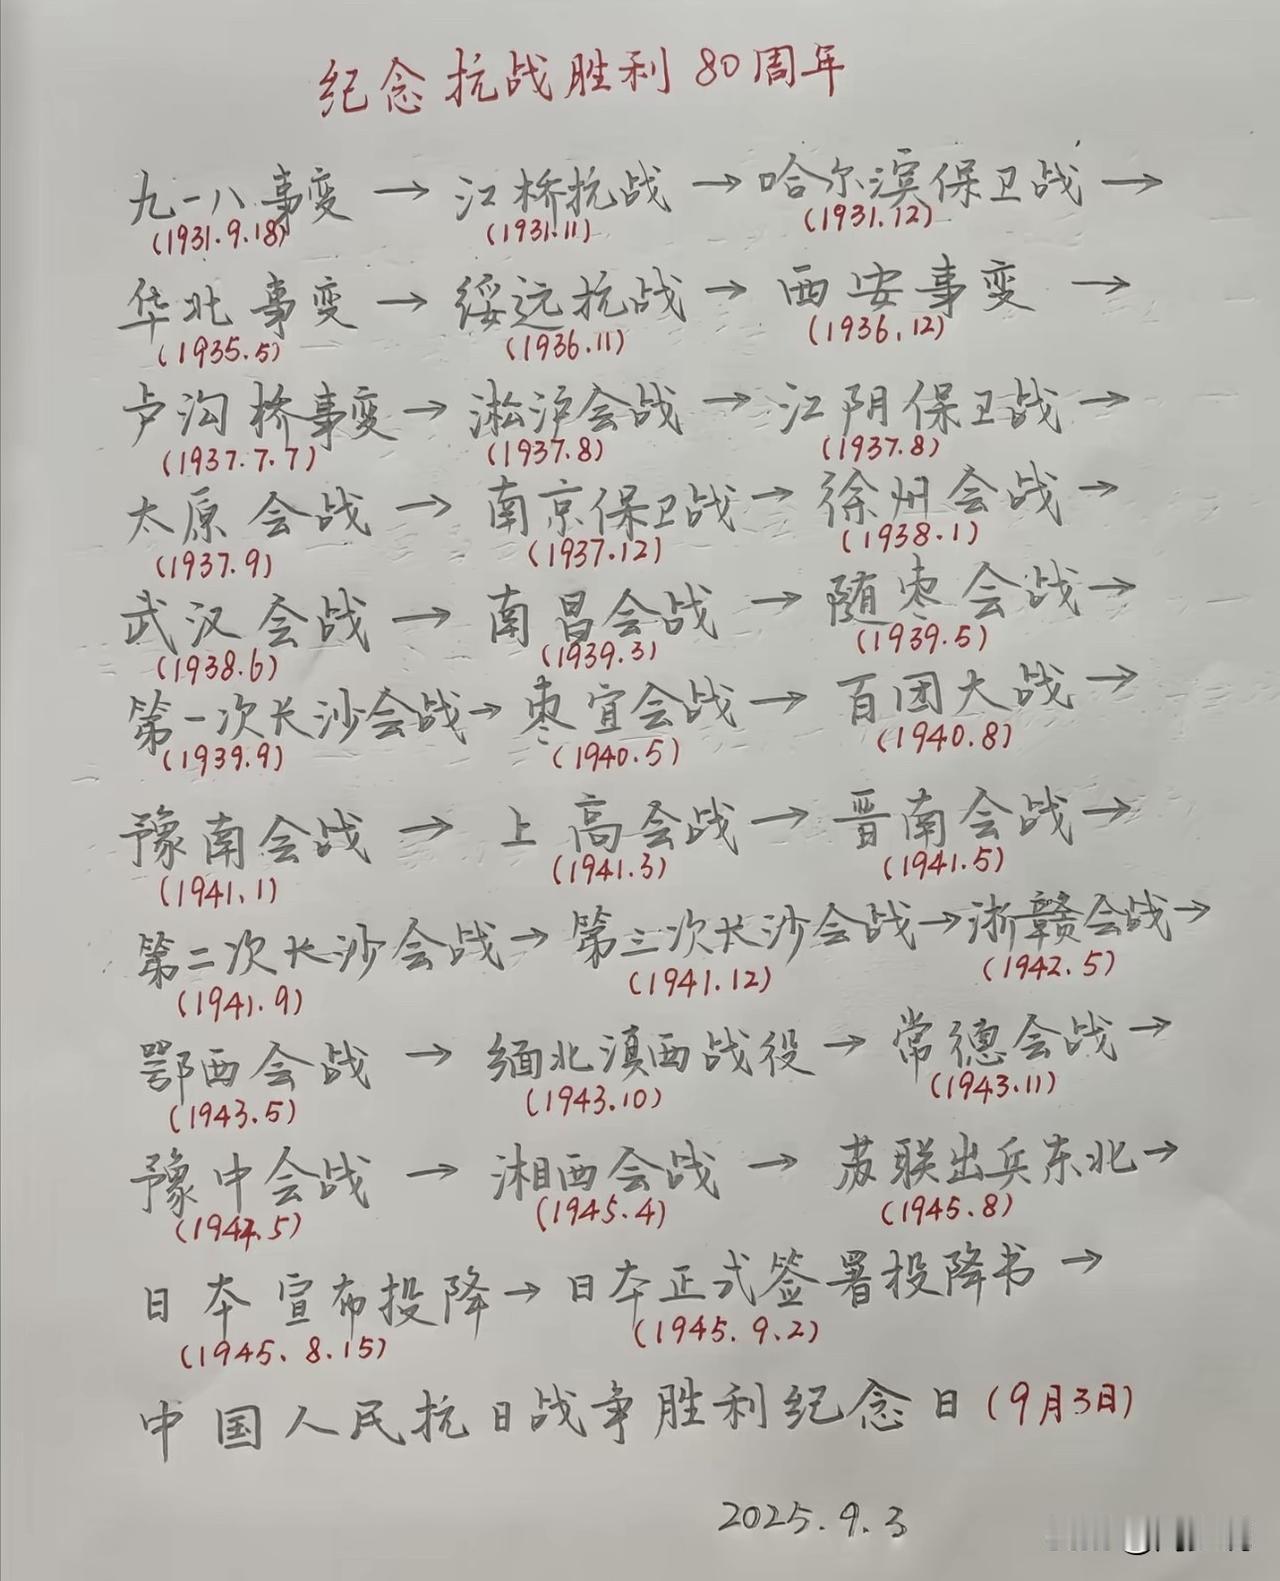 纪念抗战胜利80周年
九一八事变 → 江桥抗战 → 哈尔滨保卫战 →
(1931.9.18) (1931.11) (1931.12)
华北事变 → 绥远抗战 → 西安事变 →
(1935.5) (1936.11) (1936.12)
卢沟桥事变 → 淞沪会战 → 江阴保卫战 →
(1937.7.7) (1937.8) (1937.8)
太原会战 → 南京保卫战 → 徐州会战 →
(1937.9) (1937.12) (1938.1)
武汉会战 → 南昌会战 → 随枣会战 →
(1938.6) (1939.3) (1939.5)
第一次长沙会战 → 枣宜会战 → 百团大战 →
(1939.9) (1940.5) (1940.8)
豫南会战 → 上高会战 → 晋南会战 →
(1941.1) (1941.3) (1941.5)
第二次长沙会战 → 第三次长沙会战 → 浙赣会战 →
(1941.9) (1941.12) (1942.5)
鄂西会战 → 缅北滇西战役 → 常德会战 →
(1943.5) (1943.10) (1943.11)
豫中会战 → 湘西会战 → 苏联出兵东北 →
(1944.5) (1945.4) (1945.8)
日本宣布投降 → 日本正式签署投降书 →
(1945.8.15) (1945.9.2)
中国人民抗日战争胜利纪念日(9月3日)
2025.9.3